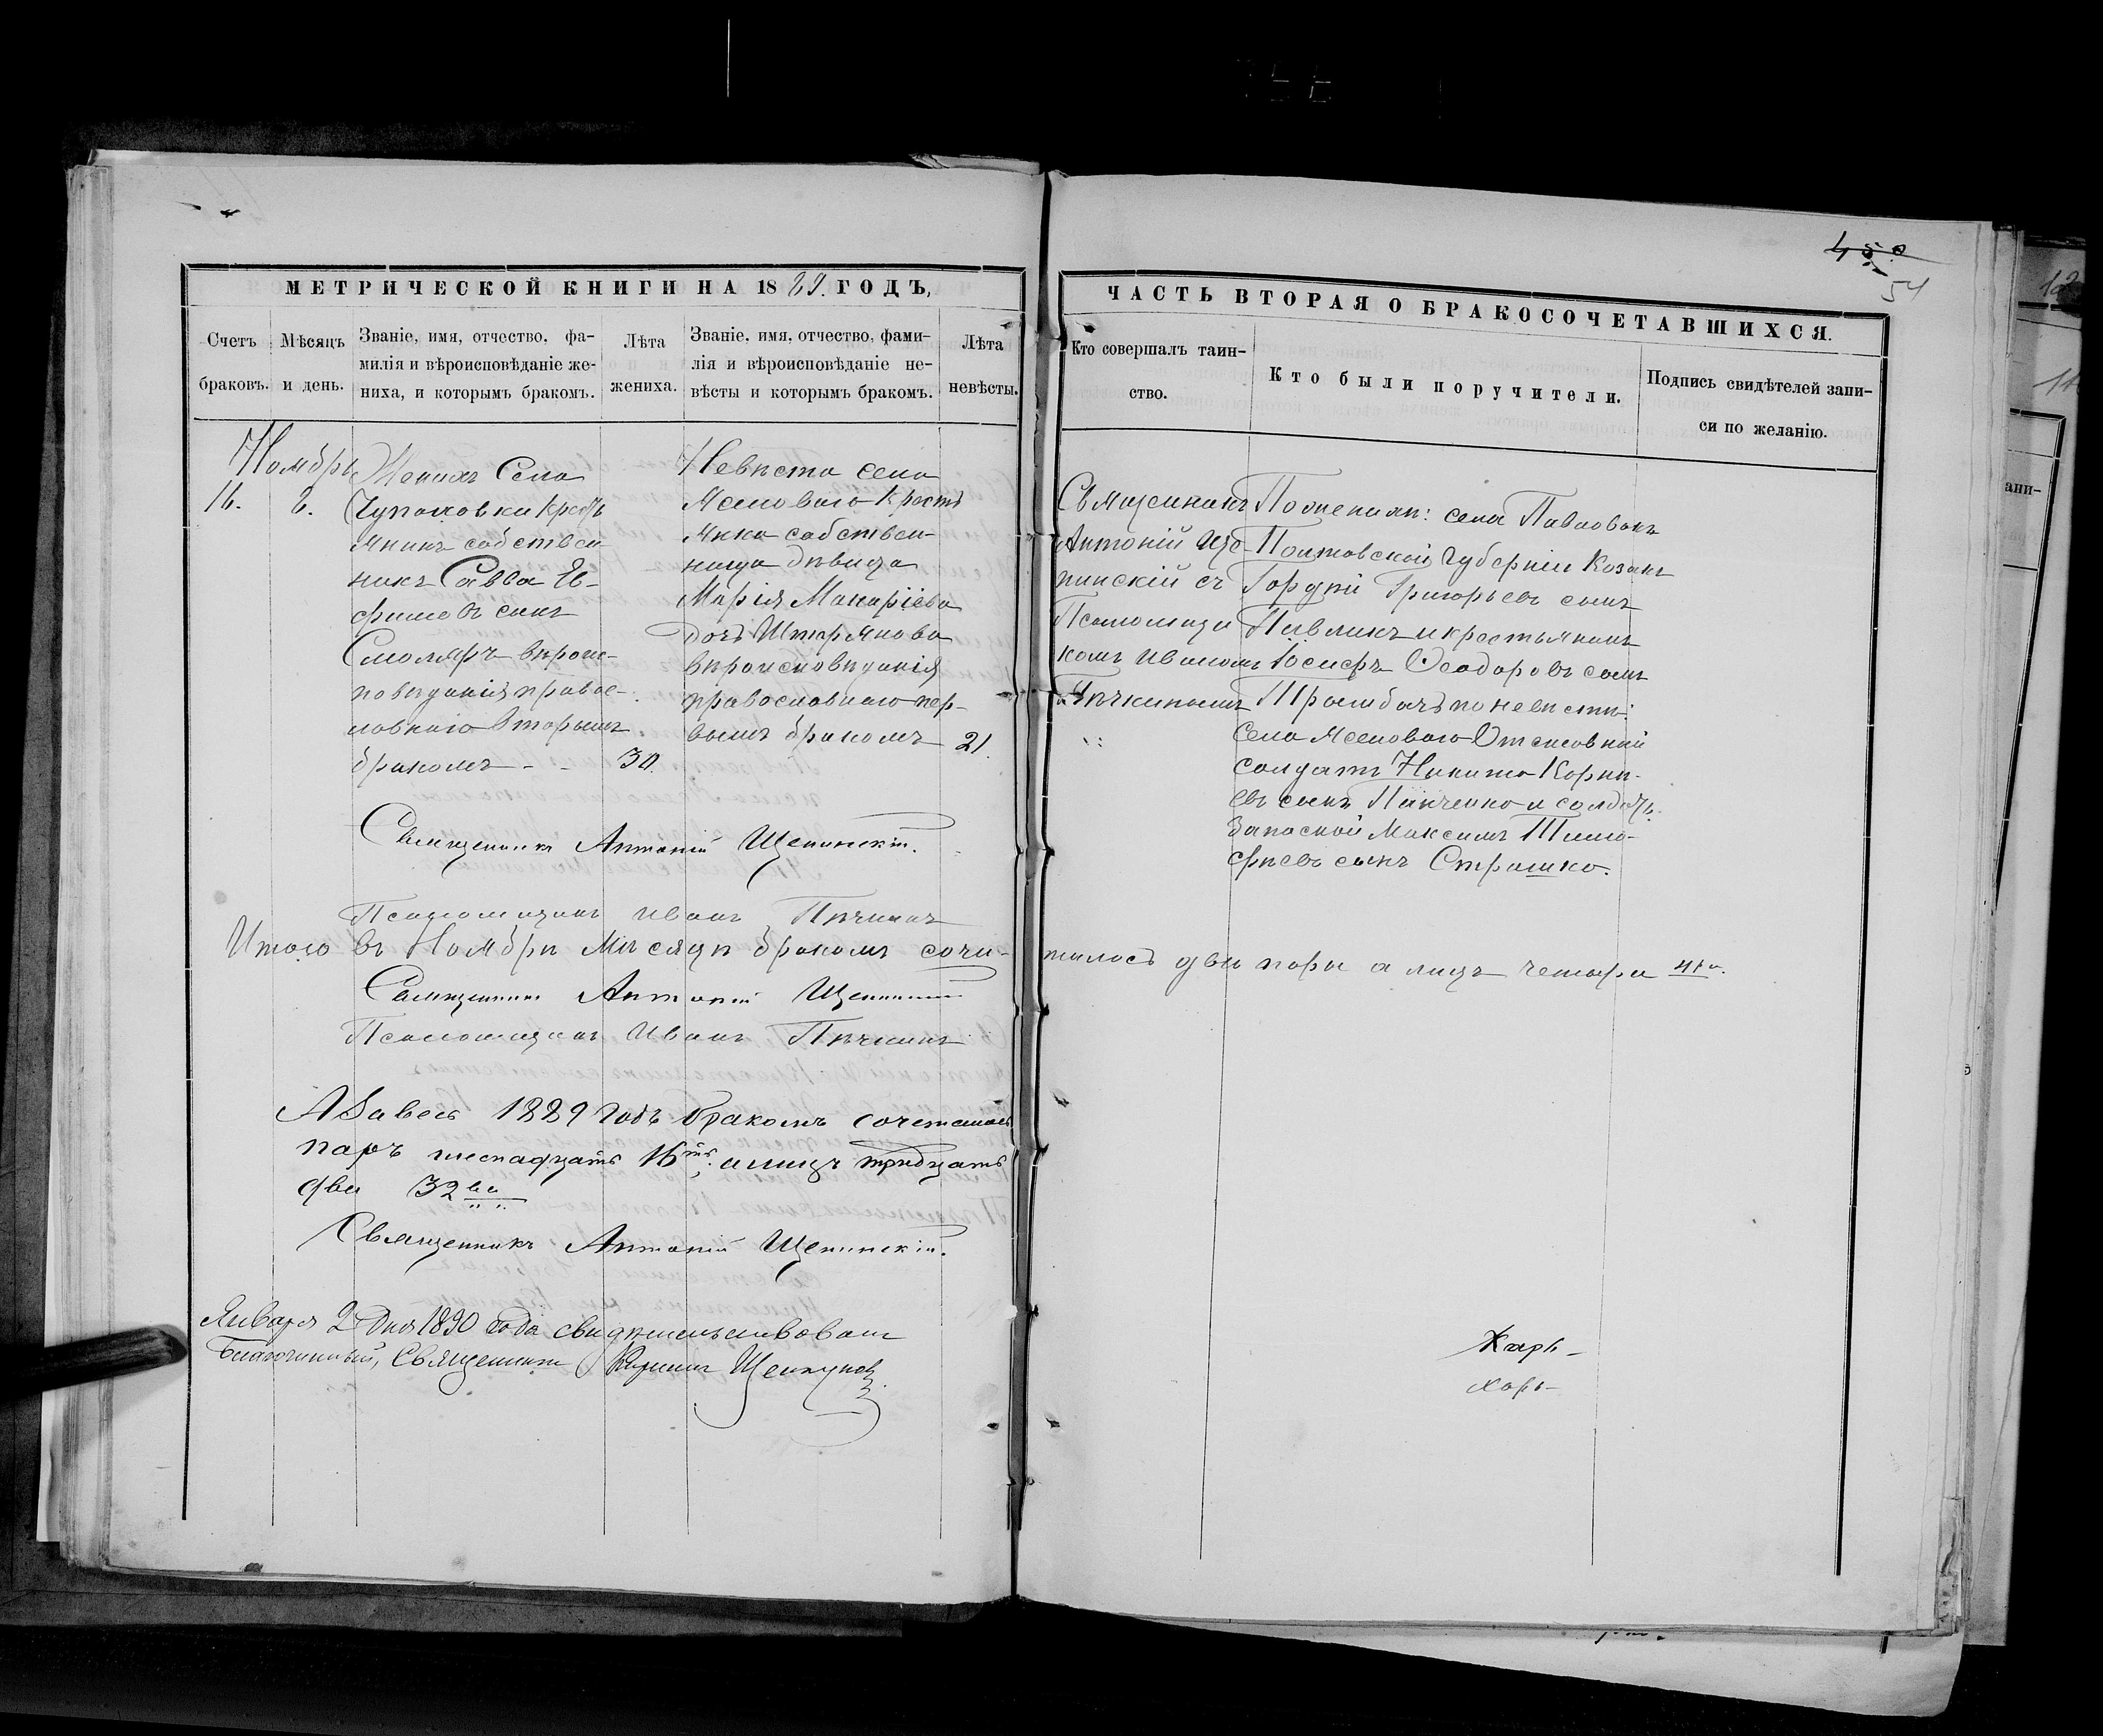 МЕТРИЧЕСКОЙ КНИГИ НА 1889. ГОДЪ,
Счетъ браковъ.
Мѣсяцъ и день.
Званіе, имя, отчество, фа-
милія и вѣроисповѣданіе же-
ниха, и которымъ бракомъ.
Лѣта
жениха.
Званіе, имя, отчество, фами-
лія и вѣроисповѣданіе не-
вѣсты и которымъ бракомъ.
Лѣта
невѣсты.
Ноябрь
16.
2.
Женихъ Села
кресть
янинъ собствен
никъ Савва Ев-
фимевъ сынъ
Смоляръ вѣроис-
повѣданія правос-
лавнаго вторымъ
бракомъ - -
30.
Невѣста села
Ясеноваго крестъ
янка собствен-
ница дѣвица
Марія Макаріева
дочь Штарянова
вѣроисповѣданія
православнаго пер-
вымъ бракомъ
21.
Священникъ Антоній Щепинскій.
Псаломщикъ Иванъ Пѣчкинъ
Итого въ Ноябрѣ Мѣсяцѣ бракомъ сочи-
Священникъ Антоній
Псаломщикъ Иванъ Пѣчкинъ
А За весь 1889 годъ бракомъ сочеталось
паръ шеснадцать 16ть. а лицъ тридцать
два 32ва
Священникъ Антоній Щепинскій.
Января 2 дня 1890 года свидѣтельствовалъ
Благочинный, Священникъ Щелкуновъ
450
54
ЧАСТЬ ВТОРАЯ О БРАКОСОЧЕТАВШИХСЯ.
Кто совершалъ таин-
ство.
Кто были поручители.
Подпись свидѣтелей запи-
си по желанію.
Священникъ
Антоній Ще-
пинскій съ
Псаломщи
комъ Иваномъ
Пѣчкинымъ
По женихѣ: села Павловкѣ
Полтовской Губерніи Козакъ
Гордѣй Григорьевъ сынъ
Павликъ и крестьянинъ
Іосифъ Ѳеодоровъ сынъ
по невѣстѣ:
Села Ясеноваго Отставной
солдатъ Никита Корнѣ-
евъ сынъ Панченко и солдатъ
Запасной Максимъ Тимо-
фѣевъ сынъ Страшко.
талось двѣ пары а лицъ четыри 4ри.
Харь-
Харь-